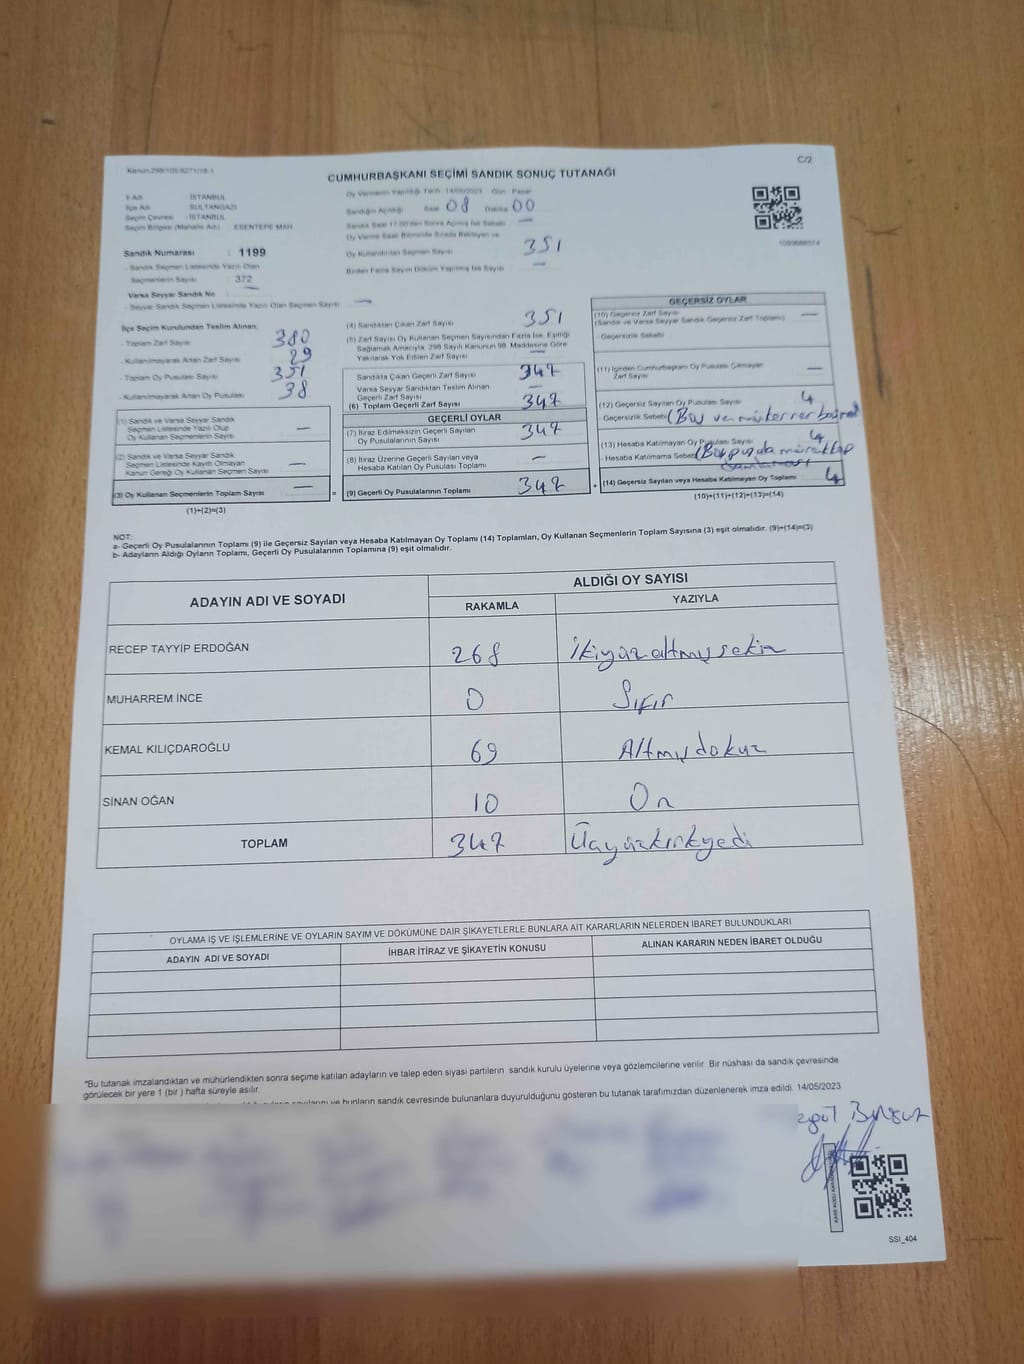 C/2
Kanun:298/105:6271/18-1
CUMHURBAŞKANI SEÇİMİ SANDIK SONUÇ TUTANAĞI
İl Adı : İSTANBUL
İlçe Adı : SULTANGAZİ
Seçim Çevresi : İSTANBUL
Seçim Bölgesi (Mahalle Adı) : ESENTEPE MAH.
Sandık Numarası : 1199
- Sandık Seçmen Listesinde Yazılı Olan
Seçmenlerin Sayısı : 372
Varsa Seyyar Sandık No : —
- Seyyar Sandık Seçmen Listesinde Yazılı Olan Seçmen Sayısı —
Oy Vermenin Yapıldığı Tarih : 14/05/2023 Gün : Pazar
Sandığın Açıldığı Saat 08 Dakika 00
Sandık Saat 17:00'den Sonra Açılmış İse Sebebi —
Oy Verme Saati Bitiminde Sırada Bekleyen ve
Oy Kullandırılan Seçmen Sayısı 351
Birden Fazla Sayım Döküm Yapılmış İse Sayısı —
İlçe Seçim Kurulundan Teslim Alınan;
- Toplam Zarf Sayısı 380
- Kullanılmayarak Artan Zarf Sayısı 29
- Toplam Oy Pusulası Sayısı 351
- Kullanılmayarak Artan Oy Pusulası 38
(1) Sandık ve Varsa Seyyar Sandık
Seçmen Listesinde Yazılı Olup
Oy Kullanan Seçmenlerin Sayısı —
(2) Sandık ve Varsa Seyyar Sandık
Seçmen Listesinde Kayıtlı Olmayan
Kanun Gereği Oy Kullanan Seçmen Sayısı —
(3) Oy Kullanan Seçmenlerin Toplam Sayısı —
(1)+(2)=(3)
(4) Sandıktan Çıkan Zarf Sayısı 351
(5) Zarf Sayısı Oy Kullanan Seçmen Sayısından Fazla İse, Eşitliği
Sağlamak Amacıyla, 298 Sayılı Kanunun 98. Maddesine Göre
Yakılarak Yok Edilen Zarf Sayısı —
Sandıkta Çıkan Geçerli Zarf Sayısı 347
Varsa Seyyar Sandıktan Teslim Alınan
Geçerli Zarf Sayısı —
(6) Toplam Geçerli Zarf Sayısı 347
GEÇERLİ OYLAR
(7) İtiraz Edilmeksizin Geçerli Sayılan
Oy Pusulalarının Sayısı 347
(8) İtiraz Üzerine Geçerli Sayılan veya
Hesaba Katılan Oy Pusulası Toplamı —
= (9) Geçerli Oy Pusulalarının Toplamı 347 +
GEÇERSİZ OYLAR
(10) Geçersiz Zarf Sayısı —
(Sandık ve Varsa Seyyar Sandık Geçersiz Zarf Toplamı)
Geçersizlik Sebebi
(11) İçinden Cumhurbaşkanı Oy Pusulası Çıkmayan
Zarf Sayısı —
(12) Geçersiz Sayılan Oy Pusulası Sayısı 4
Geçersizlik Sebebi (Boş ve mükerrer
(13) Hesaba Katılmayan Oy Pusulası Sayısı 4
- Hesaba Katılmama Sebebi (Boş pusula
(14) Geçersiz Sayılan veya Hesaba Katılmayan Oy Toplamı 4
(10)+(11)+(12)+(13)=(14)
NOT:
a- Geçerli Oy Pusulalarının Toplamı (9) ile Geçersiz Sayılan veya Hesaba Katılmayan Oy Toplamı (14) Toplamları, Oy Kullanan Seçmenlerin Toplam Sayısına (3) eşit olmalıdır. (9)+(14)=(3)
b- Adayların Aldığı Oyların Toplamı, Geçerli Oy Pusulalarının Toplamına (9) eşit olmalıdır.
ADAYIN ADI VE SOYADI
ALDIĞI OY SAYISI
RAKAMLA YAZIYLA
RECEP TAYYİP ERDOĞAN 268 İkiyüzaltmışsekiz
MUHARREM İNCE 0 Sıfır
KEMAL KILIÇDAROĞLU 69 Altmışdokuz
SİNAN OĞAN 10 On
TOPLAM 347 Üçyüzkırkyedi
OYLAMA İŞ VE İŞLEMLERİNE VE OYLARIN SAYIM VE DÖKÜMÜNE DAİR ŞİKAYETLERLE BUNLARA AİT KARARLARIN NELERDEN İBARET BULUNDUKLARI
ADAYIN ADI VE SOYADI İHBAR İTİRAZ VE ŞİKAYETİN KONUSU ALINAN KARARIN NEDEN İBARET OLDUĞU
*Bu tutanak imzalandıktan ve mühürlendikten sonra seçime katılan adayların ve talep eden siyasi partilerin sandık kurulu üyelerine veya gözlemcilerine verilir. Bir nüshası da sandık çevresinde
görülecek bir yere 1 (bir ) hafta süreyle asılır.
ve bunların sandık çevresinde bulunanlara duyurulduğunu gösteren bu tutanak tarafımızdan düzenlenerek imza edildi. 14/05/2023
SSI_404